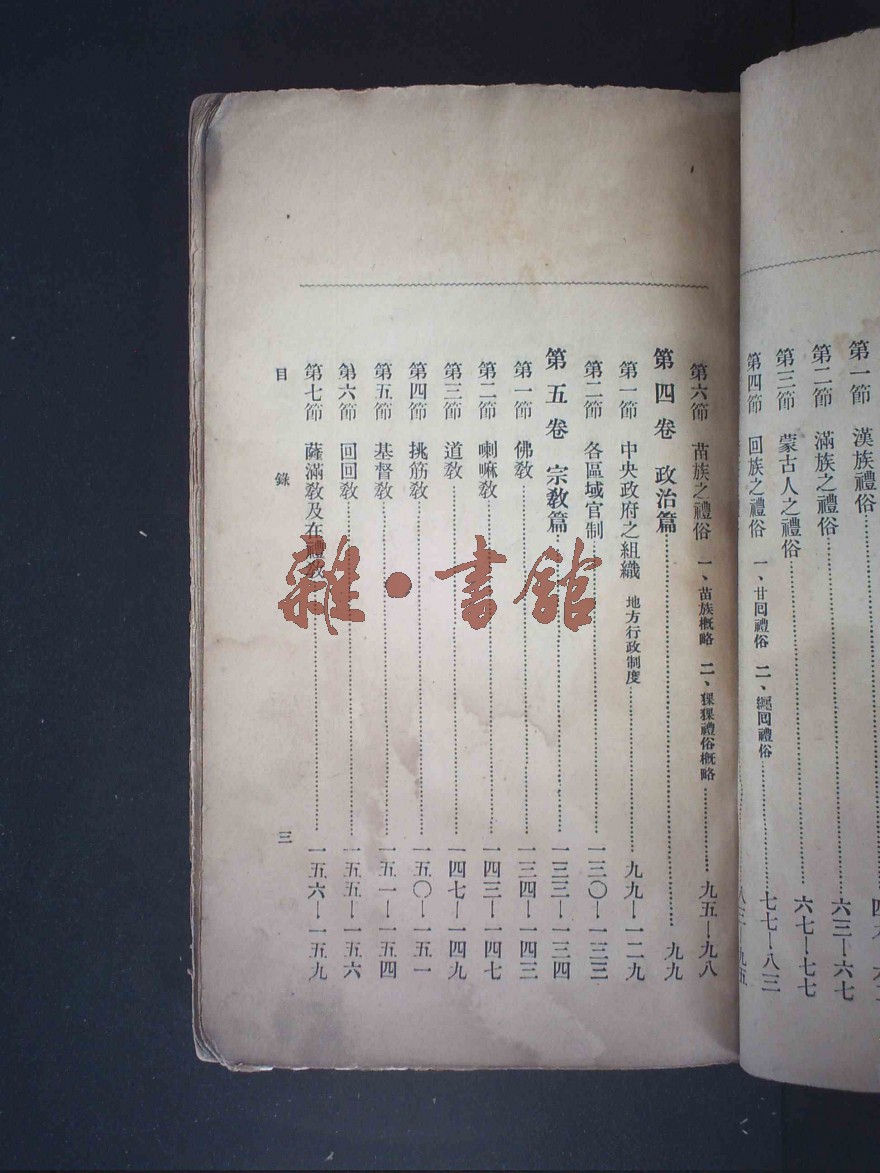 第一節　漢族禮俗
第二節　滿族之禮俗……六三—六七
第三節　蒙古人之禮俗……六七—七七
第四節　回族之禮俗　一、甘回禮俗　二、纏回禮俗……七七—八三
第六節　苗族之禮俗　一、苗族概略　二、猓猓禮俗概略……九五—九八
第四卷　政治篇……九九
第一節　中央政府之組織　地方行政制度……九九—一二九
第二節　各區域官制……一三〇—一三三
第五卷　宗教篇……一三三—一三四
第一節　佛教……一三四—一四三
第二節　喇嘛教……一四三—一四七
第三節　道教……一四七—一四九
第四節　挑筋教……一五〇—一五一
第五節　基督教……一五一—一五四
第六節　回回教……一五五—一五六
第七節　薩滿教及在禮教……一五六—一五九
目錄　三
雜·書館